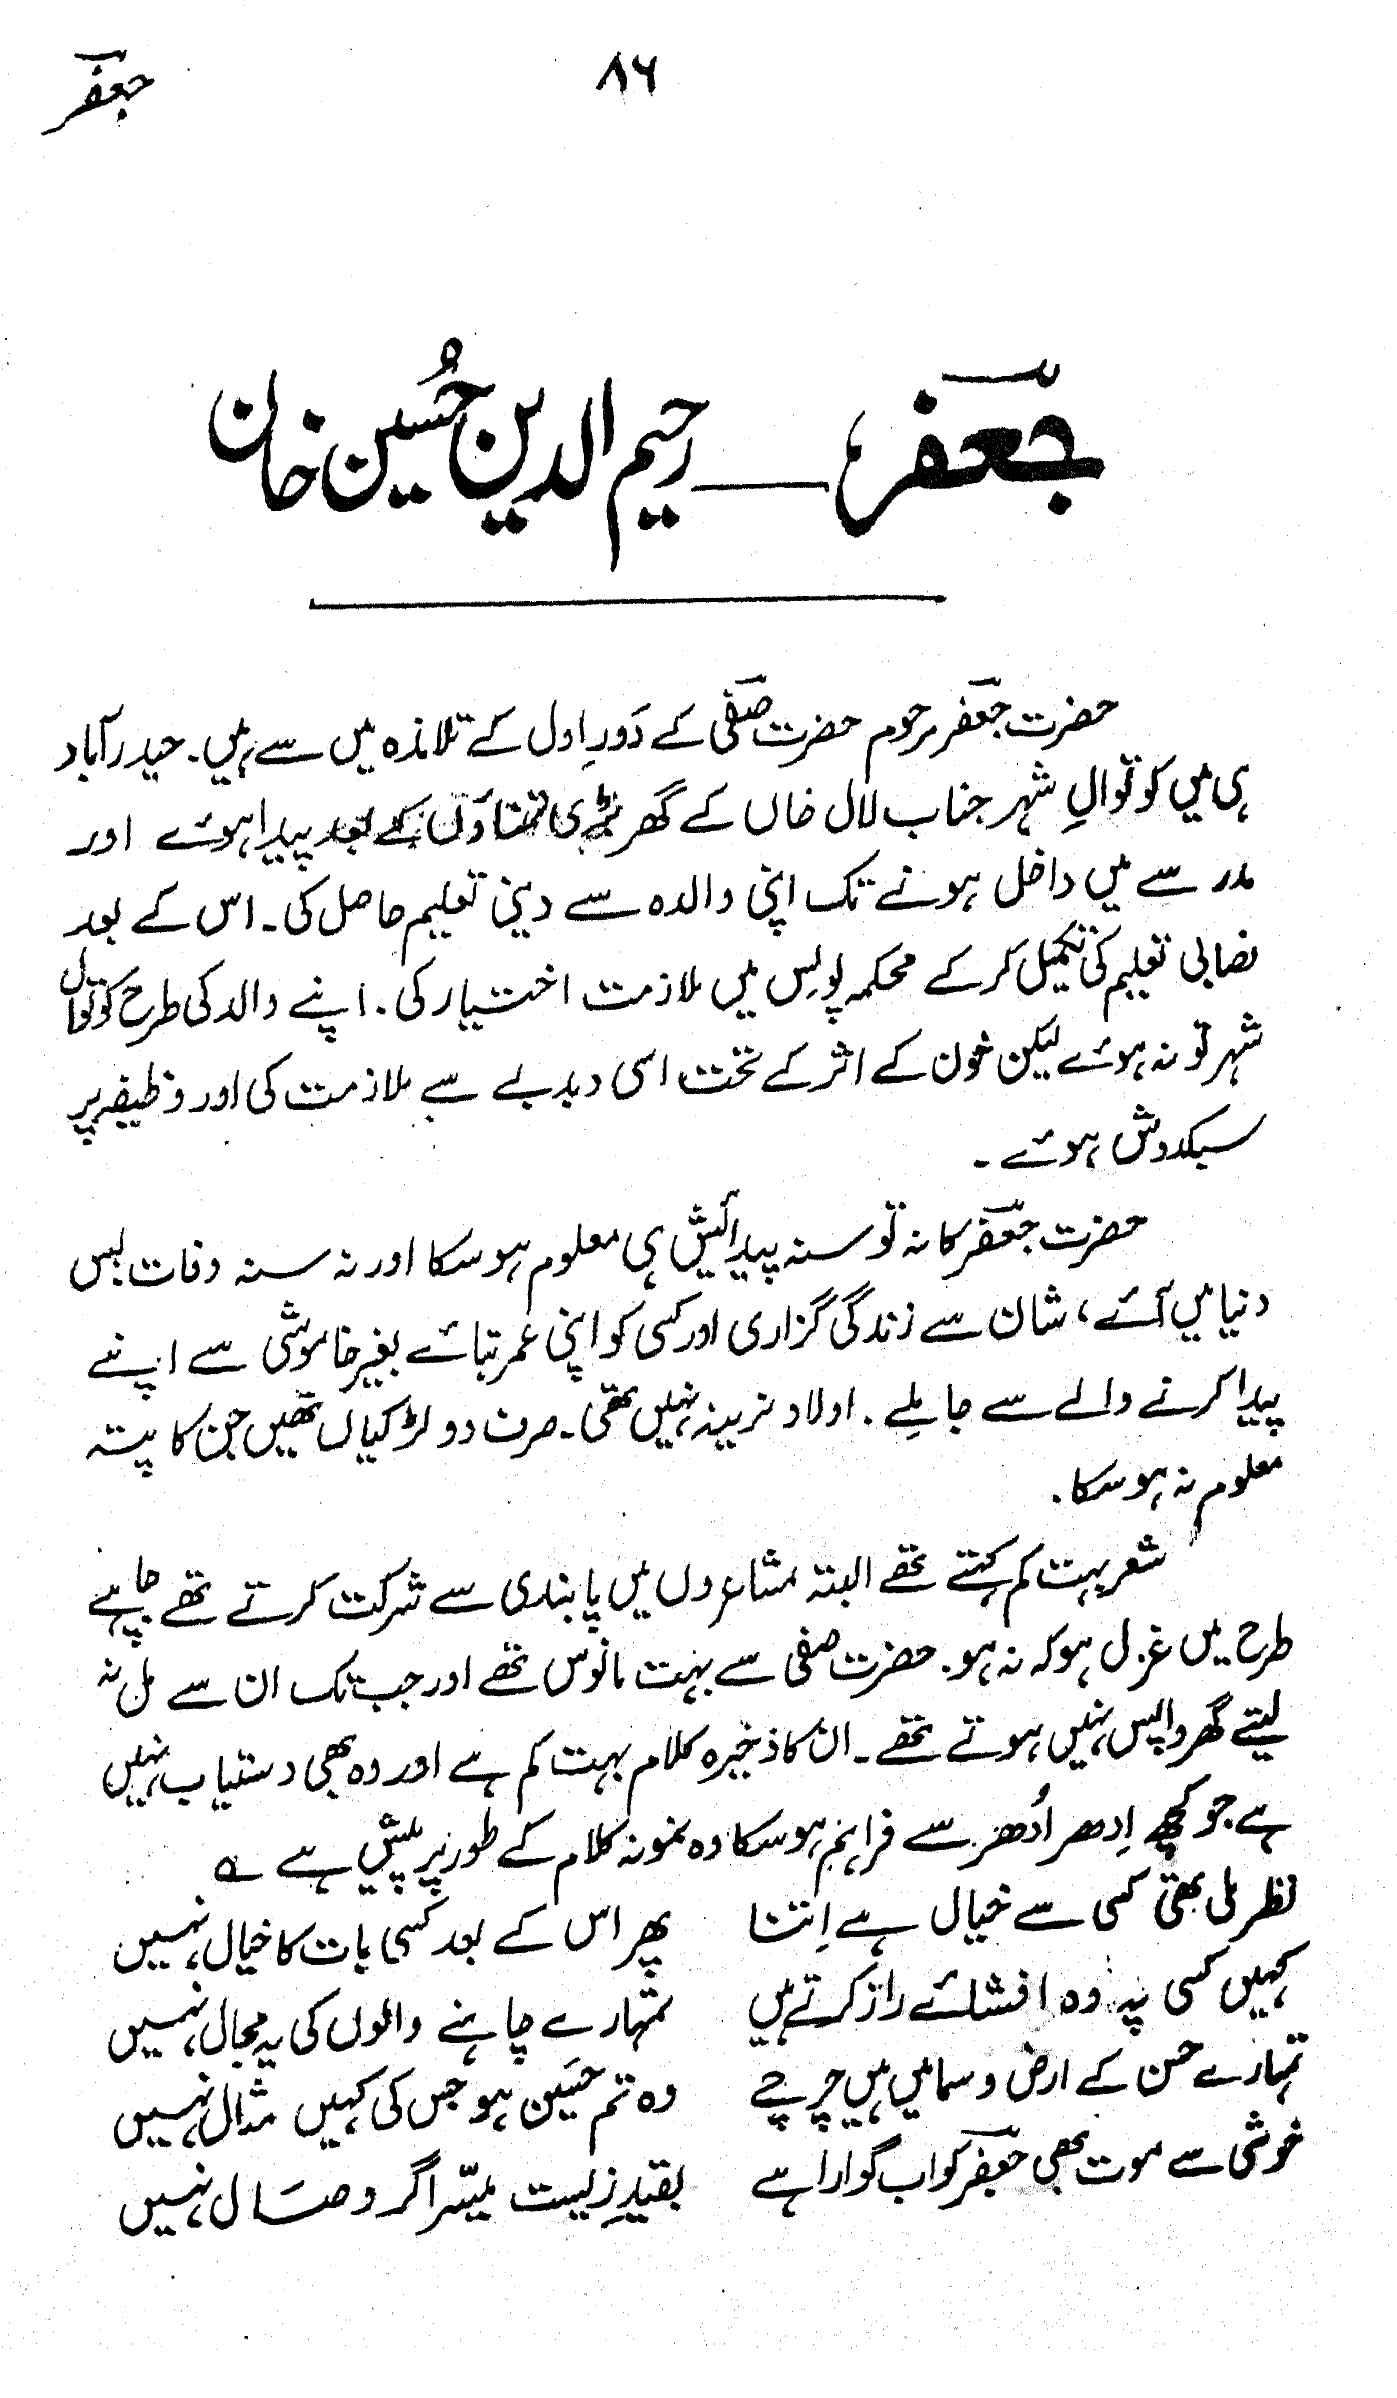 جعفرؔ
۸۶
جعفرؔ، ــــ رحیم الدین حُسین خان
حضرت جعفرؔ مرحوم حضرت صفیؔ کے دَورِ اول کے تلامذہ میں سے ہیں۔ حیدرآباد
ہی میں کوتوالِ شہر جناب لال خاں کے گھر بڑی تمناؤں کے بعد پیدا ہوئے اور
مدرسے میں داخل ہونے تک اپنی والدہ سے دینی تعلیم حاصل کی۔ اس کے بعد
نصابی تعلیم کی تکمیل کر کے محکمہ پولس میں ملازمت اختیار کی۔ اپنے والد کی طرح کوتوال
شہر تو نہ ہوئے لیکن خون کے اثر کے تحت اسی دبدبے سے ملازمت کی اور وظیفہ پر
سبکدوش ہوئے۔
حضرت جعفرؔ کا نہ تو سنہ پیدائش ہی معلوم ہو سکا اور نہ سنہ وفات بس
دنیا میں آئے، شان سے زندگی گزاری اور کسی کو اپنی عمر بتائے بغیر خاموشی سے اپنے
پیدا کرنے والے سے جا ملے۔ اولاد نرینہ نہیں تھی۔ صرف دو لڑکیاں تھیں جن کا پتہ
معلوم نہ ہو سکا۔
شعر بہت کم کہتے تھے البتہ مشاعروں میں پابندی سے شرکت کرتے تھے چاہے
طرح میں غزل ہو کہ نہ ہو۔ حضرت صفی سے بہت مانوس تھے اور جب تک ان سے مل نہ
لیتے گھر واپس نہیں ہوتے تھے۔ ان کا ذخیرہ کلام بہت کم ہے اور وہ بھی دستیاب نہیں
ہے جو کچھ اِدھر اُدھر سے فراہم ہو سکا وہ نمونہ کلام کے طور پر پیش ہے ؎
نظر ملی تھی کسی سے خیال ہے اِتنا پھر اس کے بعد کسی بات کا خیال نہیں
کہیں کسی پہ وہ افشائے راز کرتے ہیں تمہارے چاہنے والوں کی یہ مجال نہیں
تمہارے حسن کے ارض و سما میں ہیں چرچے وہ تم حَسین ہو جس کی کہیں مثال نہیں
خوشی سے موت بھی جعفرؔ کو اب گوارا ہے بقیدِ زیست میسّر اگر وصَال نہیں